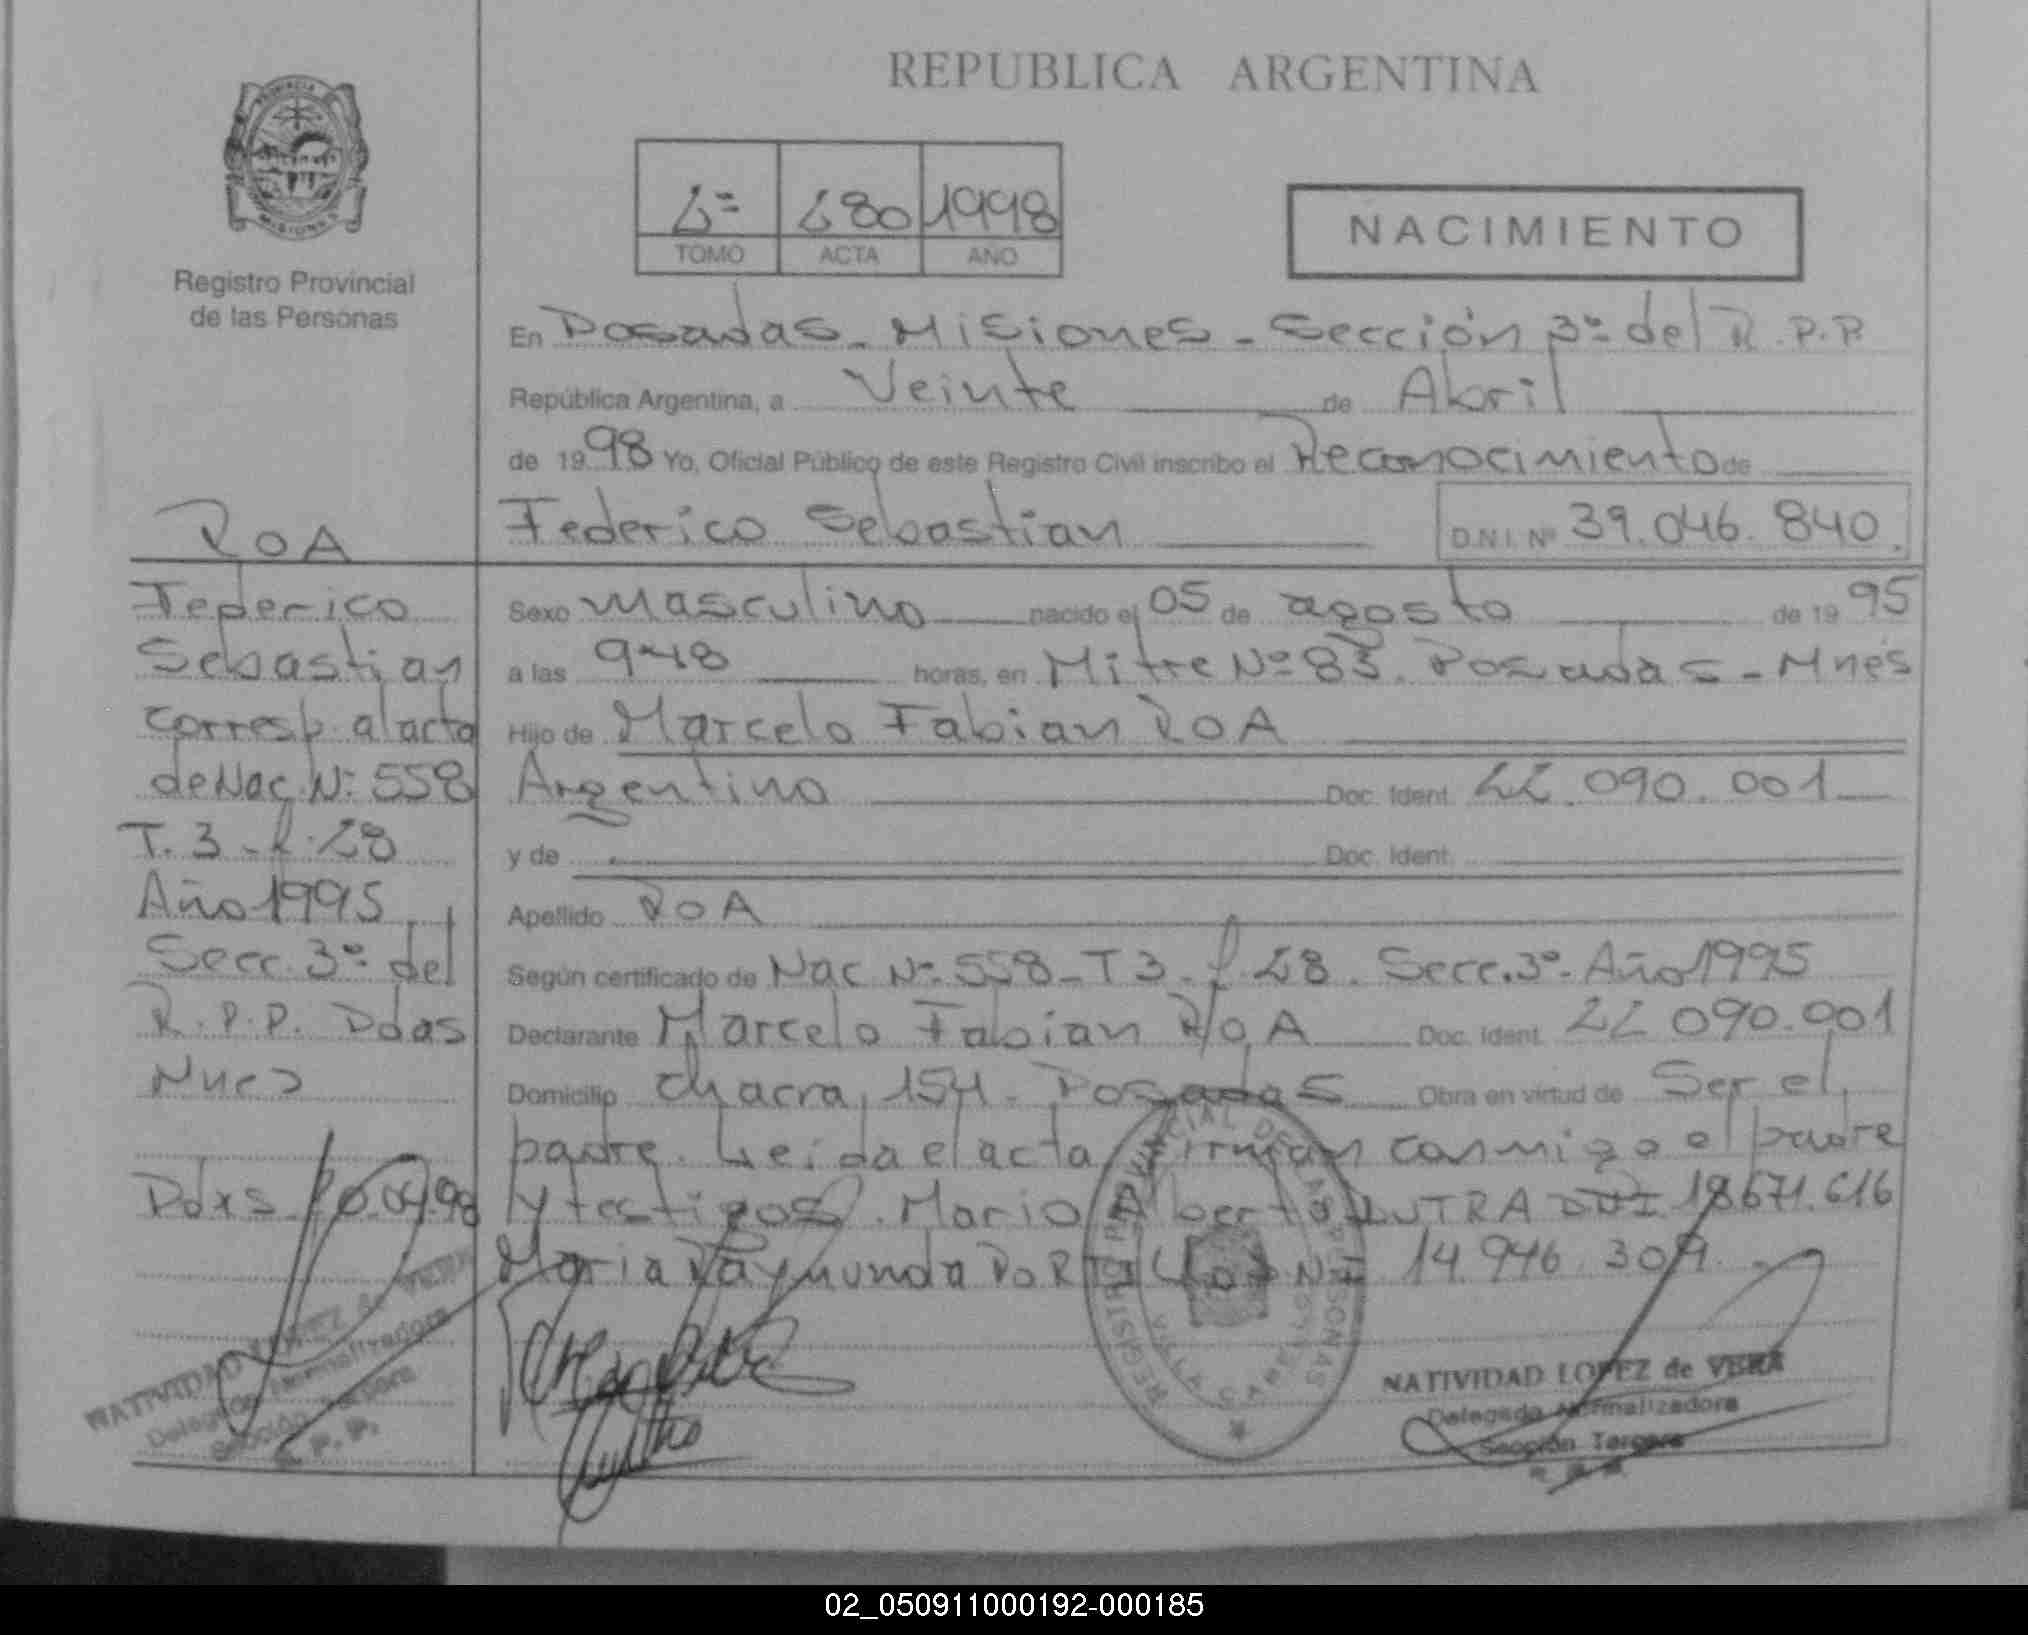 REPUBLICA ARGENTINA
PROVINCIA DE MISIONES
Registro Provincial
de las Personas
2º 280 1998
TOMO ACTA AÑO
NACIMIENTO
En Posadas - Misiones - Sección 3º del R.P.P.
República Argentina, a Veinte de Abril
de 1998 Yo, Oficial Público de este Registro Civil inscribo el Reconocimiento de
Federico Sebastian D.N.I. Nº 39.046.840.
Sexo masculino nacido el 05 de agosto de 1995
a las 9-48 horas, en Mitre Nº 83. Posadas - Mnes
Hijo de Marcelo Fabian ROA
Argentino Doc. Ident. 22.090.001
y de Doc. Ident.
Apellido ROA
Según certificado de Nac Nº 558 - T 3 - f 28. Secc. 3º - Año 1995
Declarante Marcelo Fabian ROA Doc. Ident. 22.090.001
Domicilio Chacra 154 - Posadas Obra en virtud de Ser el
padre. Leida el acta firman conmigo el padre
y testigos. Mario Alberto DUTRA DNI 18.671.616
Maria Raymunda 14.946.309.
ROA
Federico
Sebastian
corresp. al acta
de Nac. Nº 558
T. 3 - f. 28
Año 1995
Secc. 3º del
R.P.P. Pdas
Mnes
Pdas 20.04.98
NATIVIDAD LOPEZ de VERA
Delegada Normalizadora
Sección Tercera
R.P.P.
REGISTRO PROVINCIAL DE LAS PERSONAS
NATIVIDAD LOPEZ de VERA
Delegada Normalizadora
Sección Tercera
02_050911000192-000185